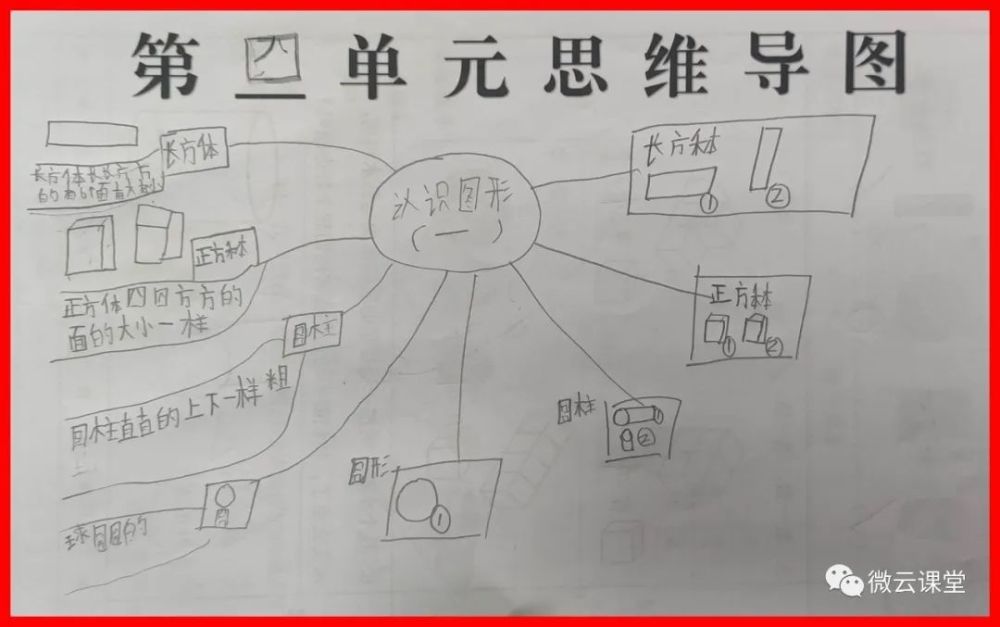 第六单元思维导图
认识图形
(一)
长方体
长方体长长方方
正方体
正方体四四方方的
面的大小一样
圆柱
圆柱直直的上下一样粗
球圆圆的
圆形
①
圆柱
②
正方体
① ②
长方体
① ②
微云课堂